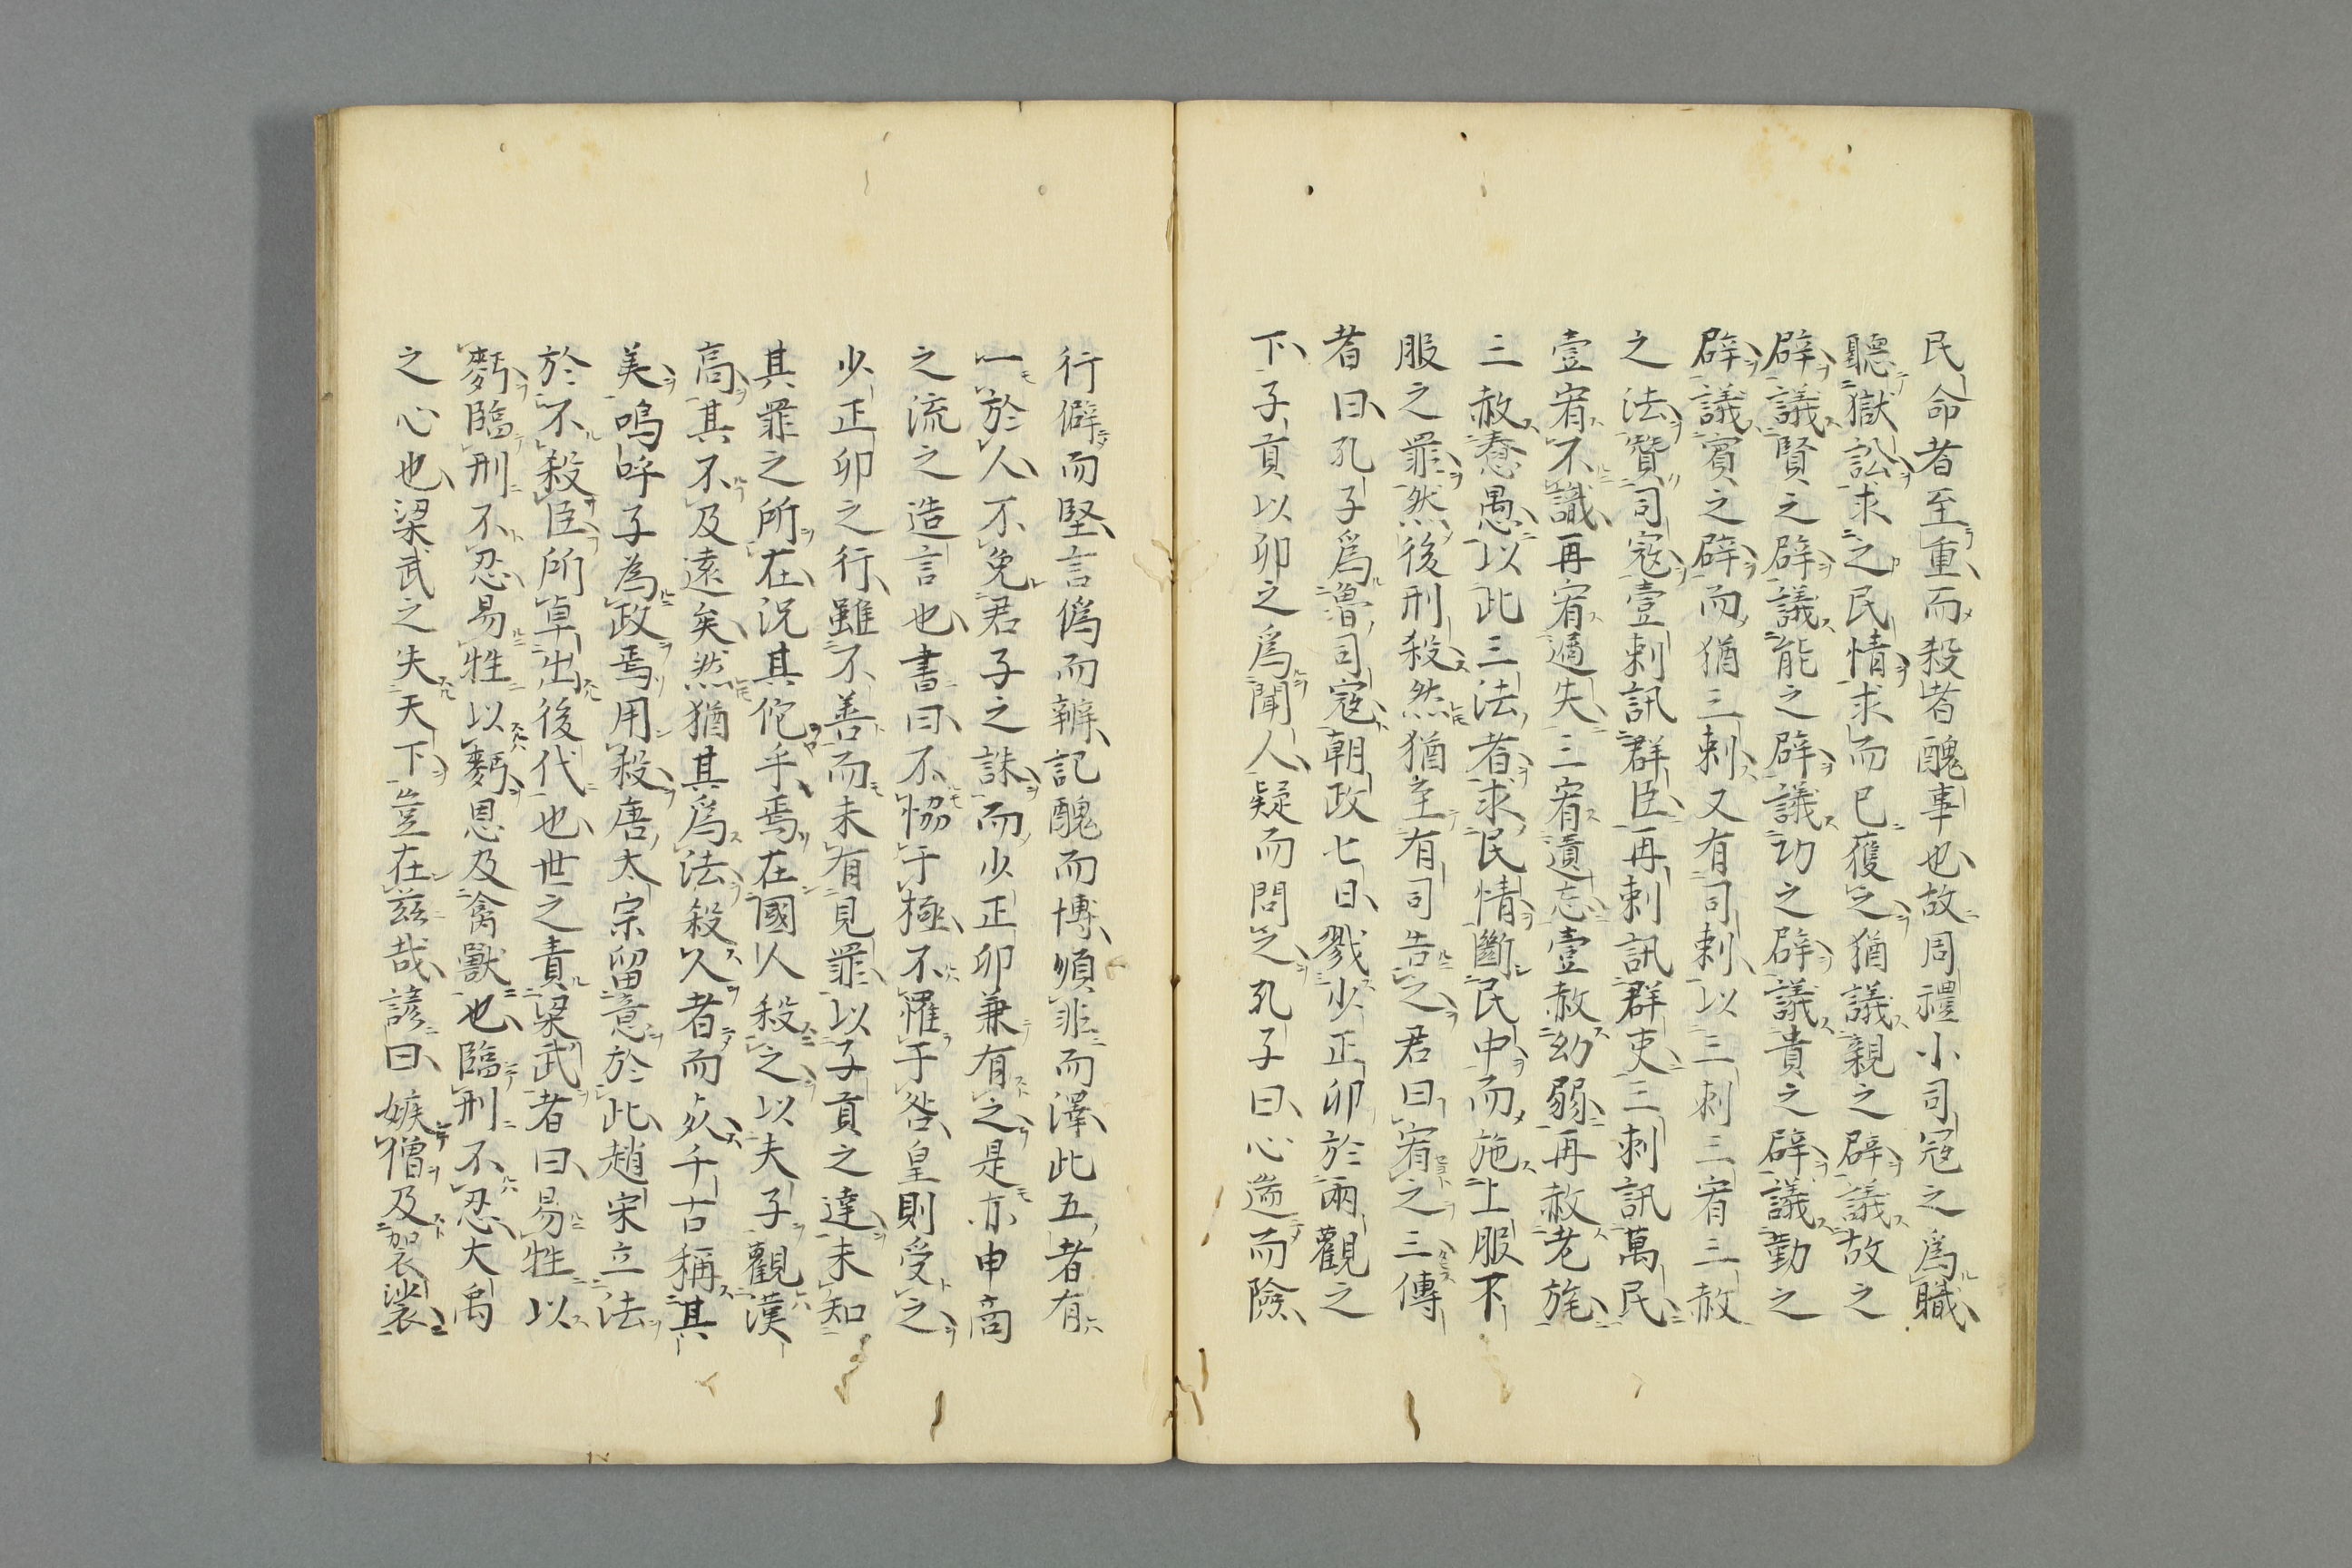 民命者至重而殺者醜事也故周禮小司寇之爲職
聽獄訟求之民情求而已獲之猶議親之辟議故之
辟議賢之辟議能之辟議功之辟議貴之辟議勤之
辟議賓之辟而猶三刺又有司刺以三刺三宥三赦
之法贊司寇壹刺訊群臣再刺訊群吏三刺訊萬民
壹宥不識再宥過失三宥遺忘壹赦幼弱再赦老旄
三赦憃愚以此三法者求民情斷民中而施上服下
服之罪然後刑殺然猶至有司告之君曰宥之三傳
者曰孔子爲魯司寇朝政七日戮少正卯於兩觀之
下子貢以卯之爲聞人疑而問之孔子曰心逆而險
行僻而堅言僞而辨記醜而博順非而澤此五者有
一於人不免君子之誅而少正卯兼有之是亦申商
之流之造言也書曰不恊于極不罹于咎皇則受之
少正卯之行雖不善而未有見罪以子貢之達未知
其罪之所在況其佗乎焉在國人殺之以夫子觀漢
高其不及遠矣然猶其爲法殺人者而死千古稱其
美嗚呼子為政焉用殺唐太宗留意於此趙宋立法
於不殺臣所卓出後代也世之責梁武者曰易牲以
麪臨刑不忍易牲以麪恩及禽獸也臨刑不忍大禹
之心也梁武之失天下豈在茲哉諺曰嫉僧及袈裟